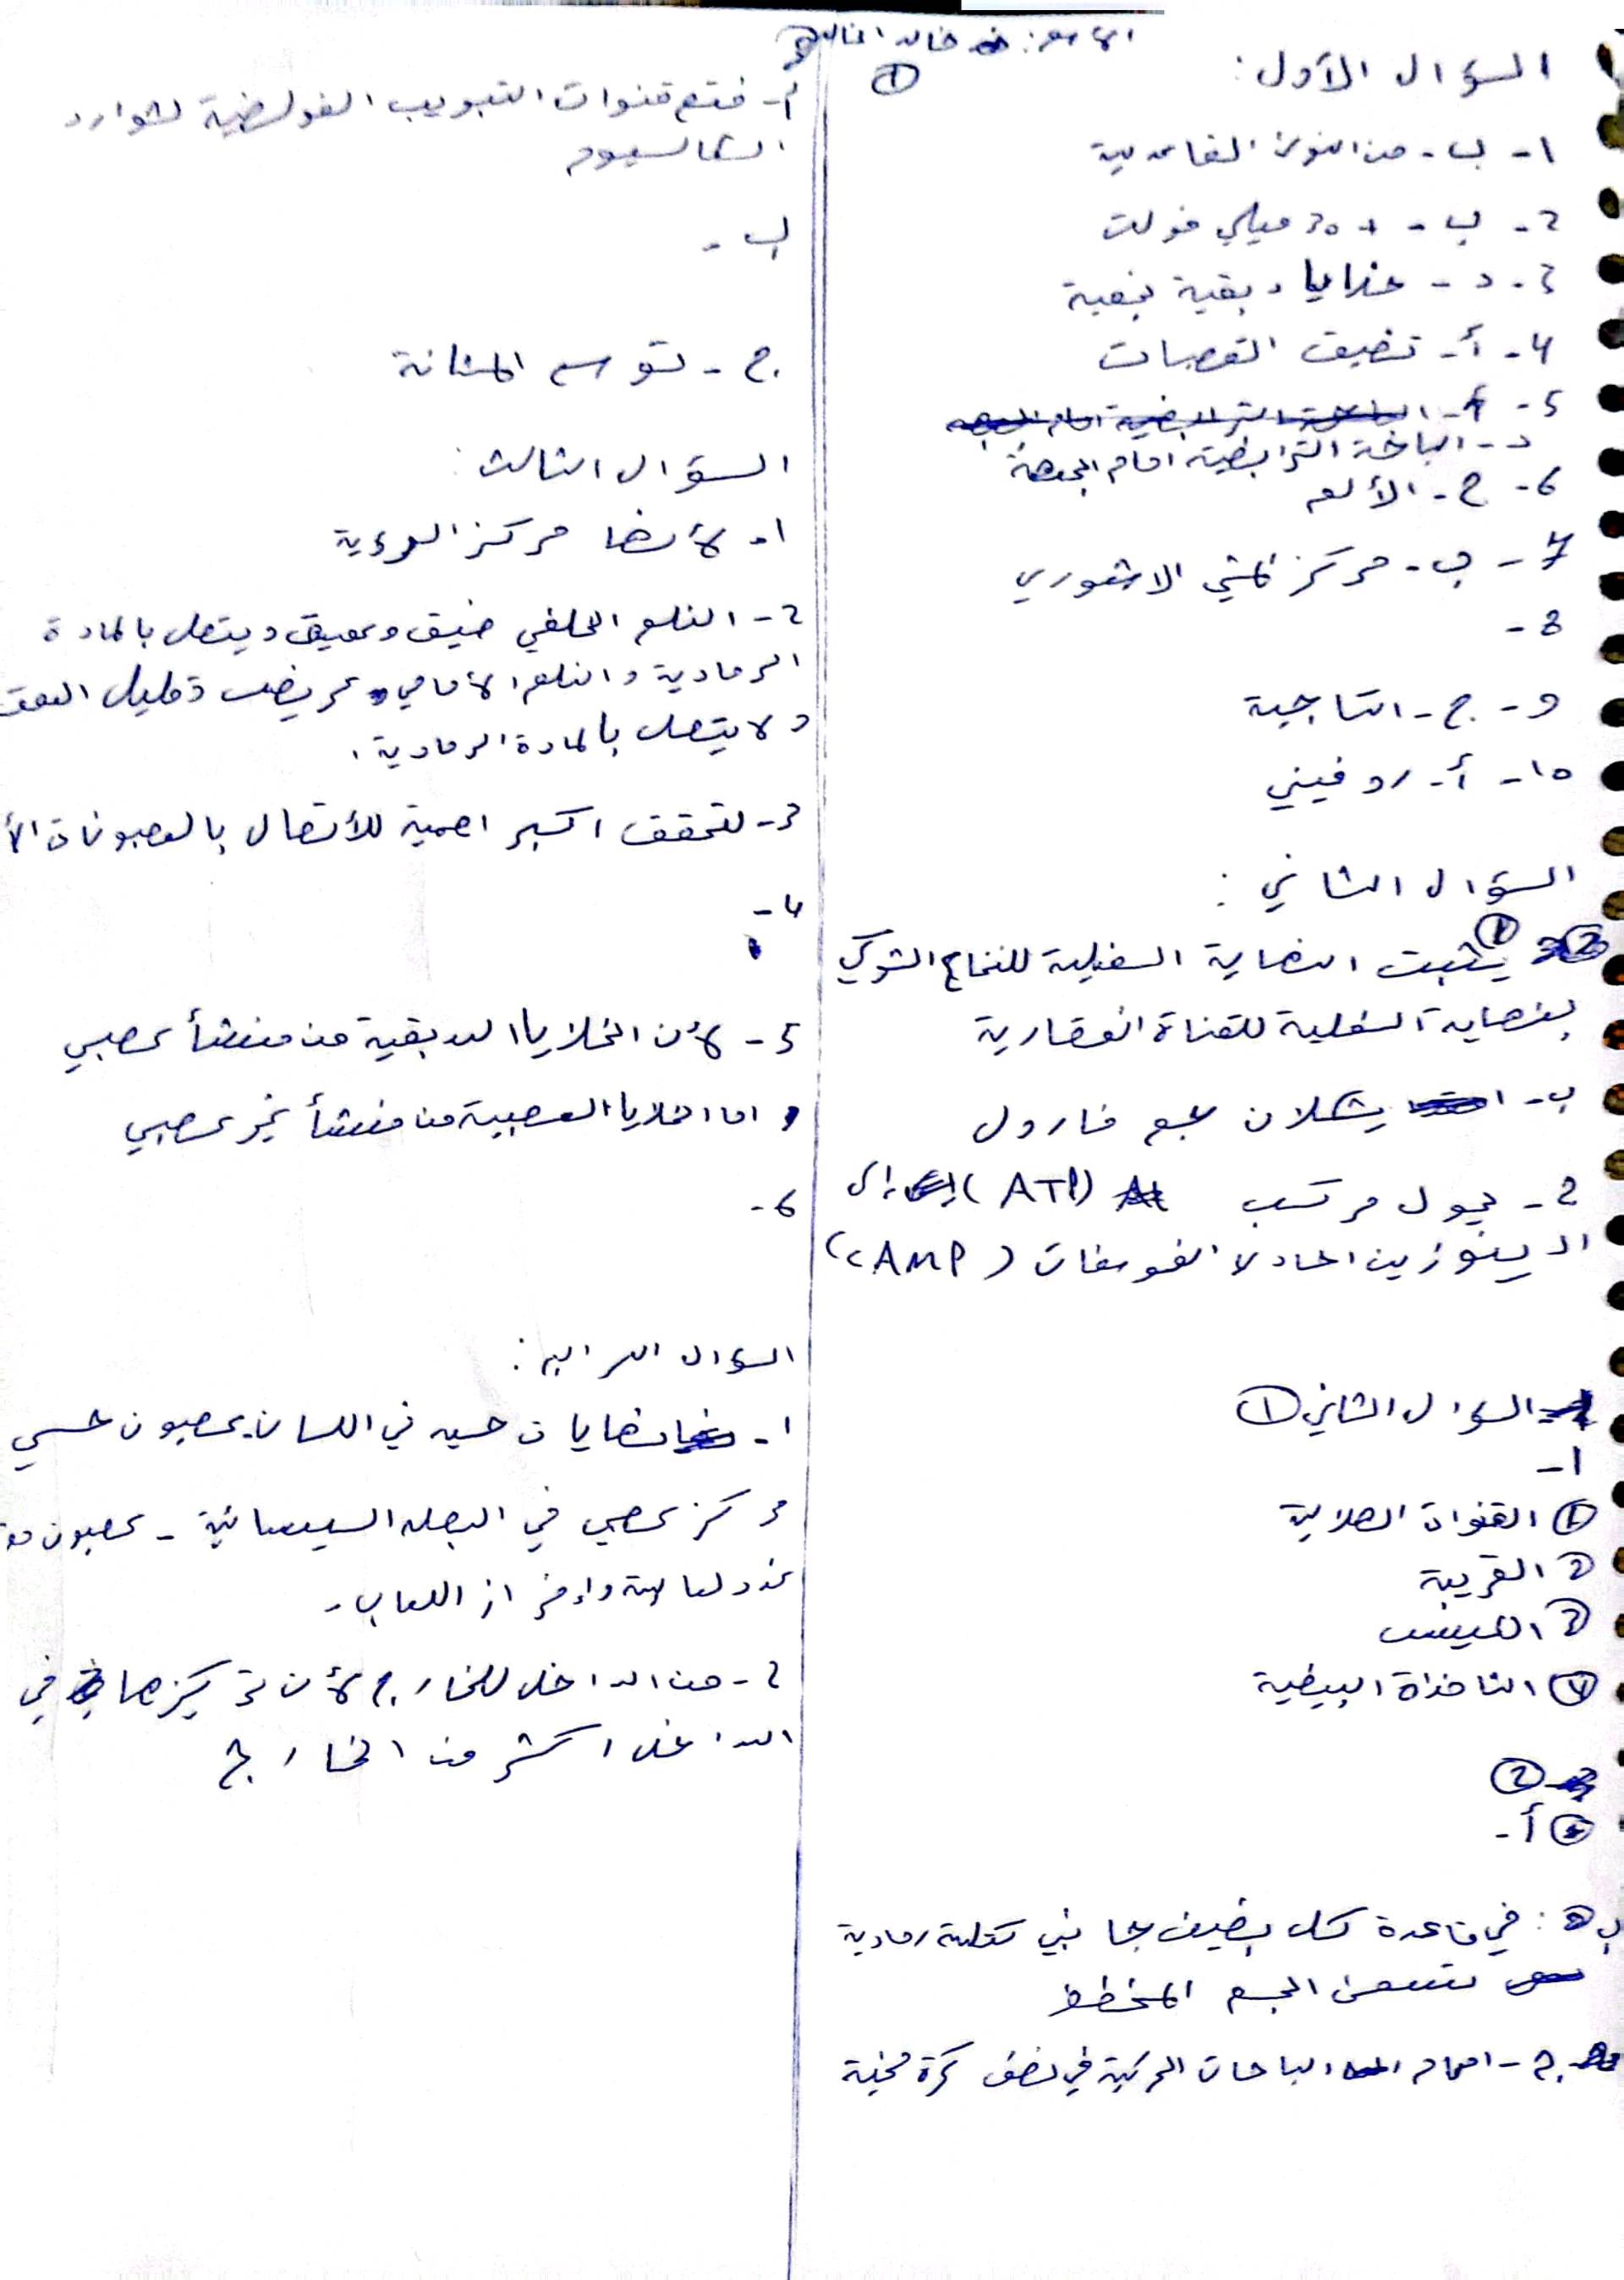 الاسم: خالد
①
السؤال الأول:
1- ب- من النوى القاعدية
2- ب- +30 ميلي فولت
3- د- خلايا دبقية نجمية
4- أ- تضيق القصبات
5- أ-
د- الباحة الترابطية امام الجبهية
6- ج- الألم
7- ب- مركز المشي اللاشعوري
8-
9- ج- التاجية
10- أ- روفيني
السؤال الثاني:
① يثبت النهاية السفلية للنخاع الشوكي
بنهاية السفلية للقناة الفقارية
ب- يشكلان جسم فارول
2- يحول مركب (ATP) إلى
الدينوزين احادي الفوسفات (cAMP)
السؤال الثاني ①
1-
① القنوات الهلالية
② القريبة
③ الكييس
④ النافذة البيضية
②
أ-
ب: في قاعدة كل بطين جانبي كتلة رمادية
تسمى الجسم المخطط
ج- امام الباحات الحركية في نصف كرة مخية
أ- فتح قنوات التبويب الفولطية لشوارد
الكالسيوم
ب-
ج- توسع المثانة
السؤال الثالث:
1- لأنها مركز الرؤية
2- الثلم الخلفي ضيق وعميق ويتصل بالمادة
الرمادية والثلم الأمامي عريض وقليل العمق
ولا يتصل بالمادة الرمادية.
3- لتحقق اكبر اهمية للأتصال بالعصبونات
4-
5- لأن الخلايا الدبقية من منشأ عصبي
واما الخلايا العصبية من منشأ غير عصبي
6-
السؤال الرابع:
1- نهايات حسيه في اللسان- عصبون حسي
مركز عصبي في البصله السيسائية - عصبون
غدد لعابية وإفراز اللعاب-
2- من الداخل للخارج لأن تركيزها في
الداخل اكثر من الخارج